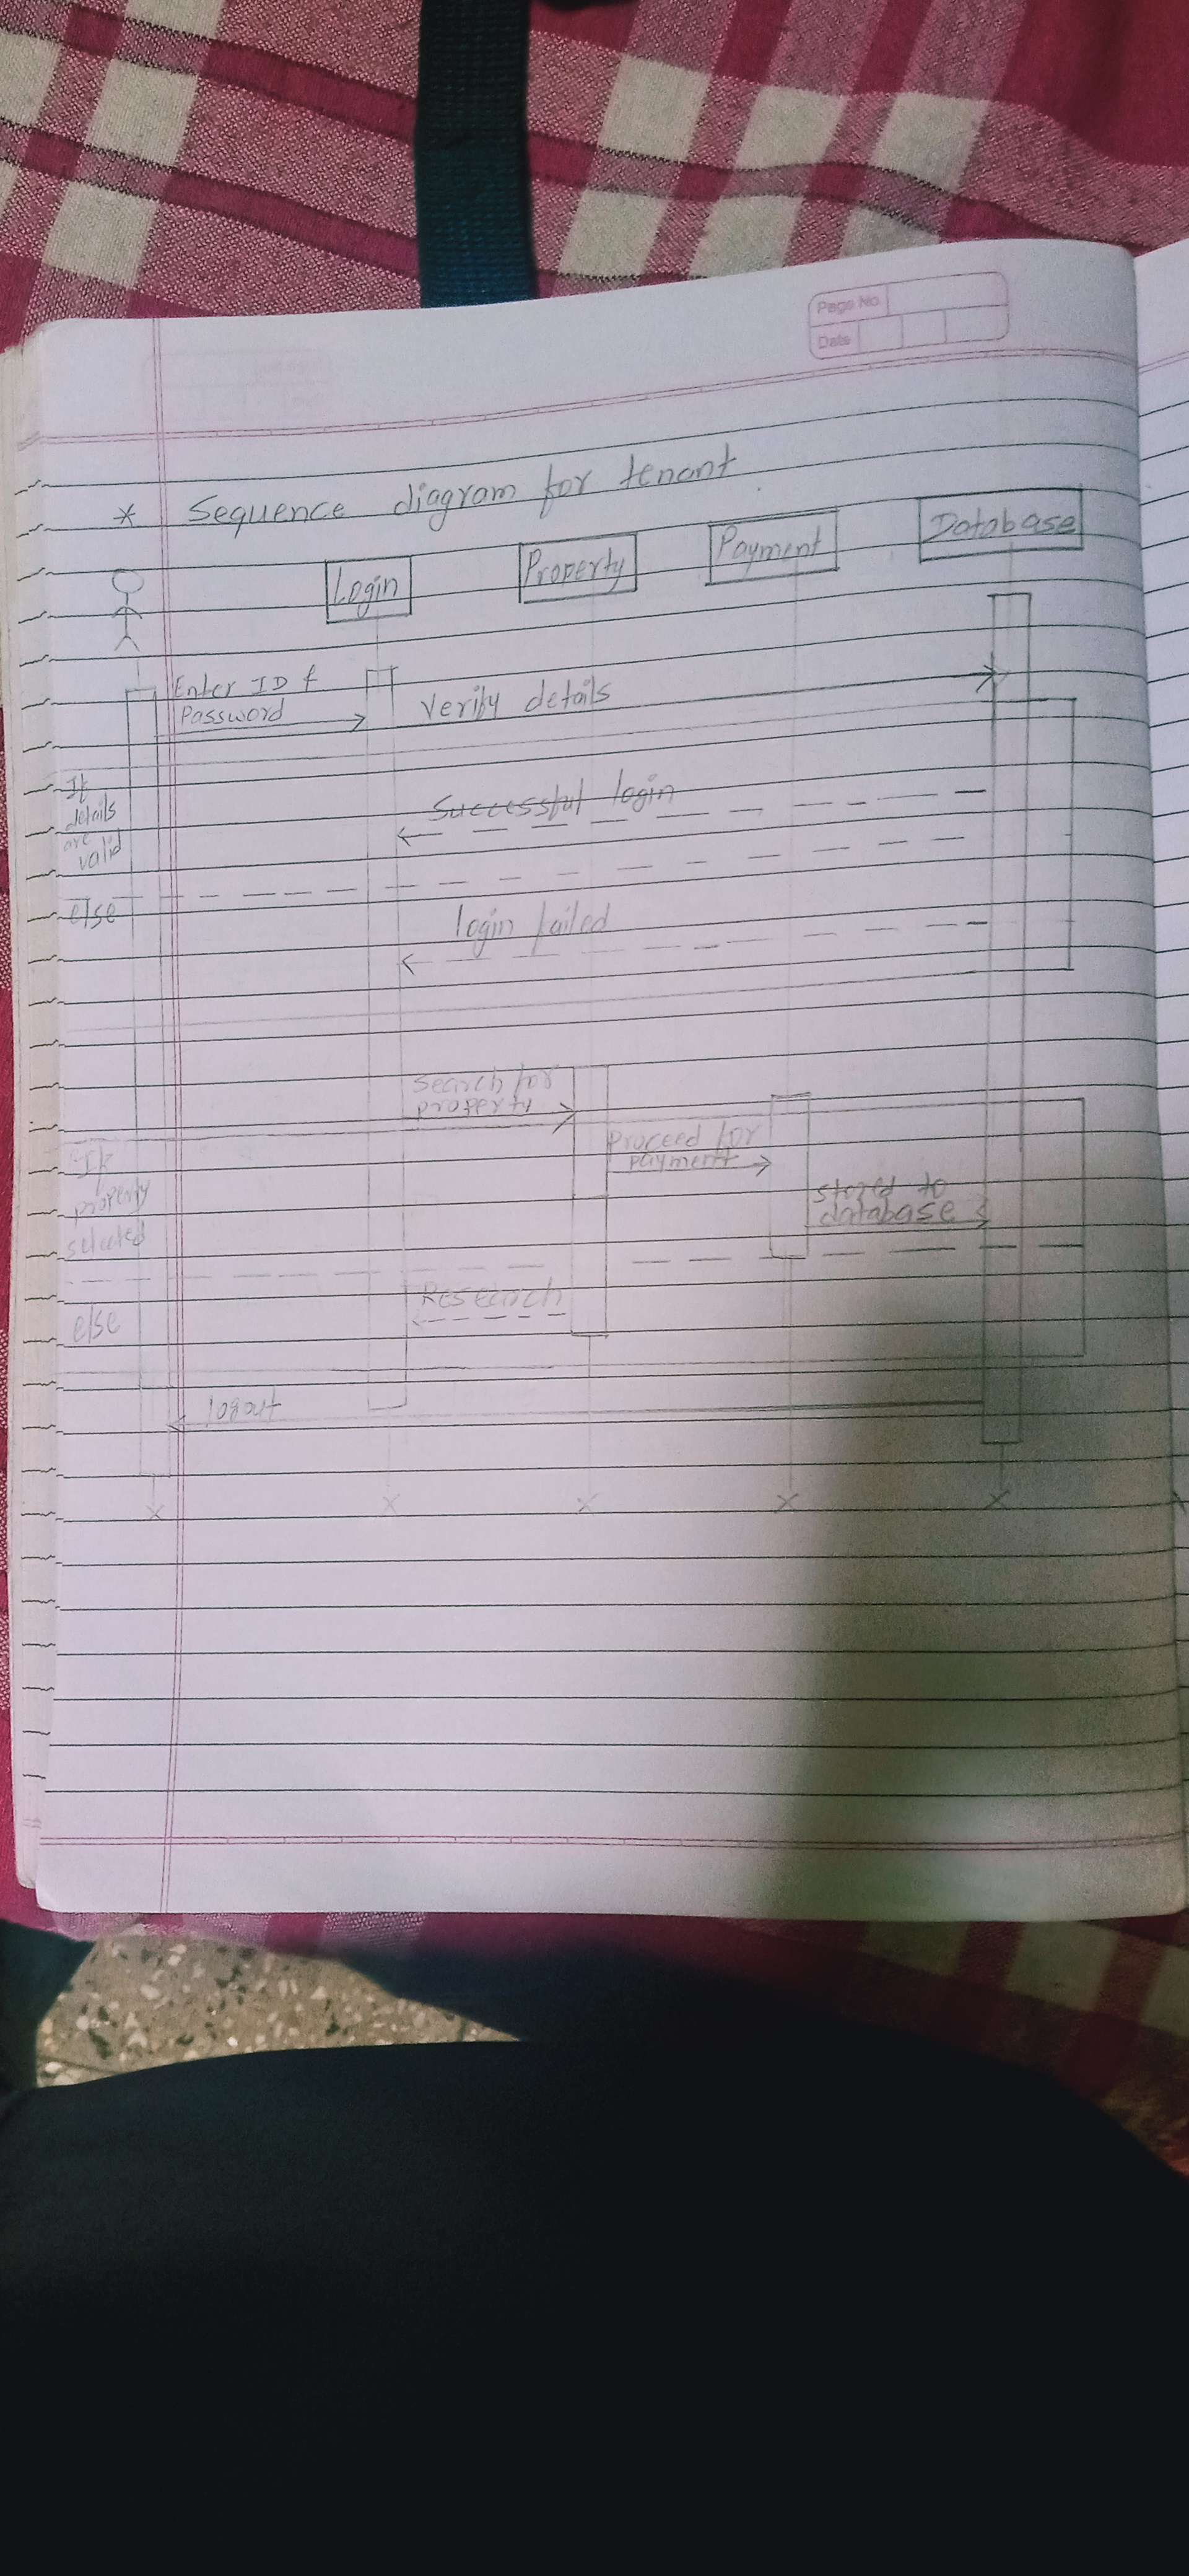 Page No.
Date
* Sequence diagram for tenant
Login
Property
Payment
Database
Enter ID &
Password
Verify details
If
details
are
valid
Successful login
else
login failed
Search for
property
Proceed for
payment
If
property
selected
stored to
database
Research
else
logout